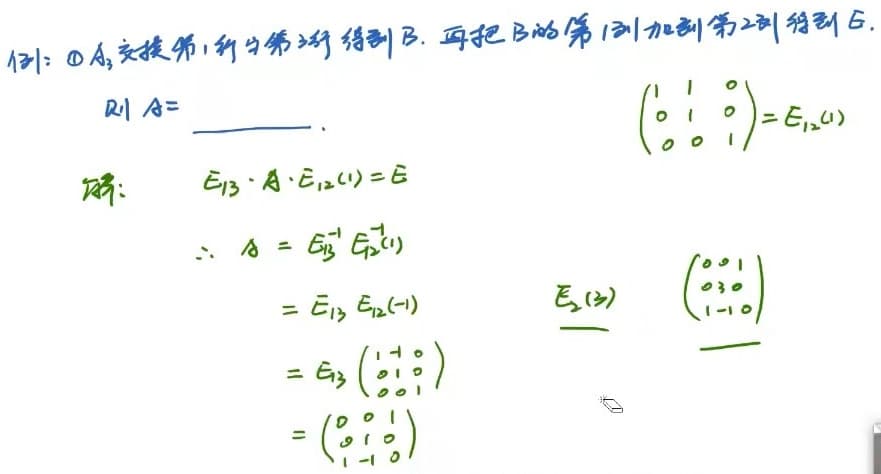 例: ① A₃ 交换第1行与第3行得到B. 再把B的第1列加到第2列得到E.
则 A= ______ .
(1 1 0
0 1 0
0 0 1) = E₁₂(1)
解: E₁₃ · A · E₁₂(1) = E
∴ A = E₁₃⁻¹ E₁₂⁻¹(1)
= E₁₃ E₁₂(-1)
E₂(3)
(0 0 1
0 3 0
1 -1 0)
= E₁₃ (1 -1 0
0 1 0
0 0 1)
= (0 0 1
0 1 0
1 -1 0)